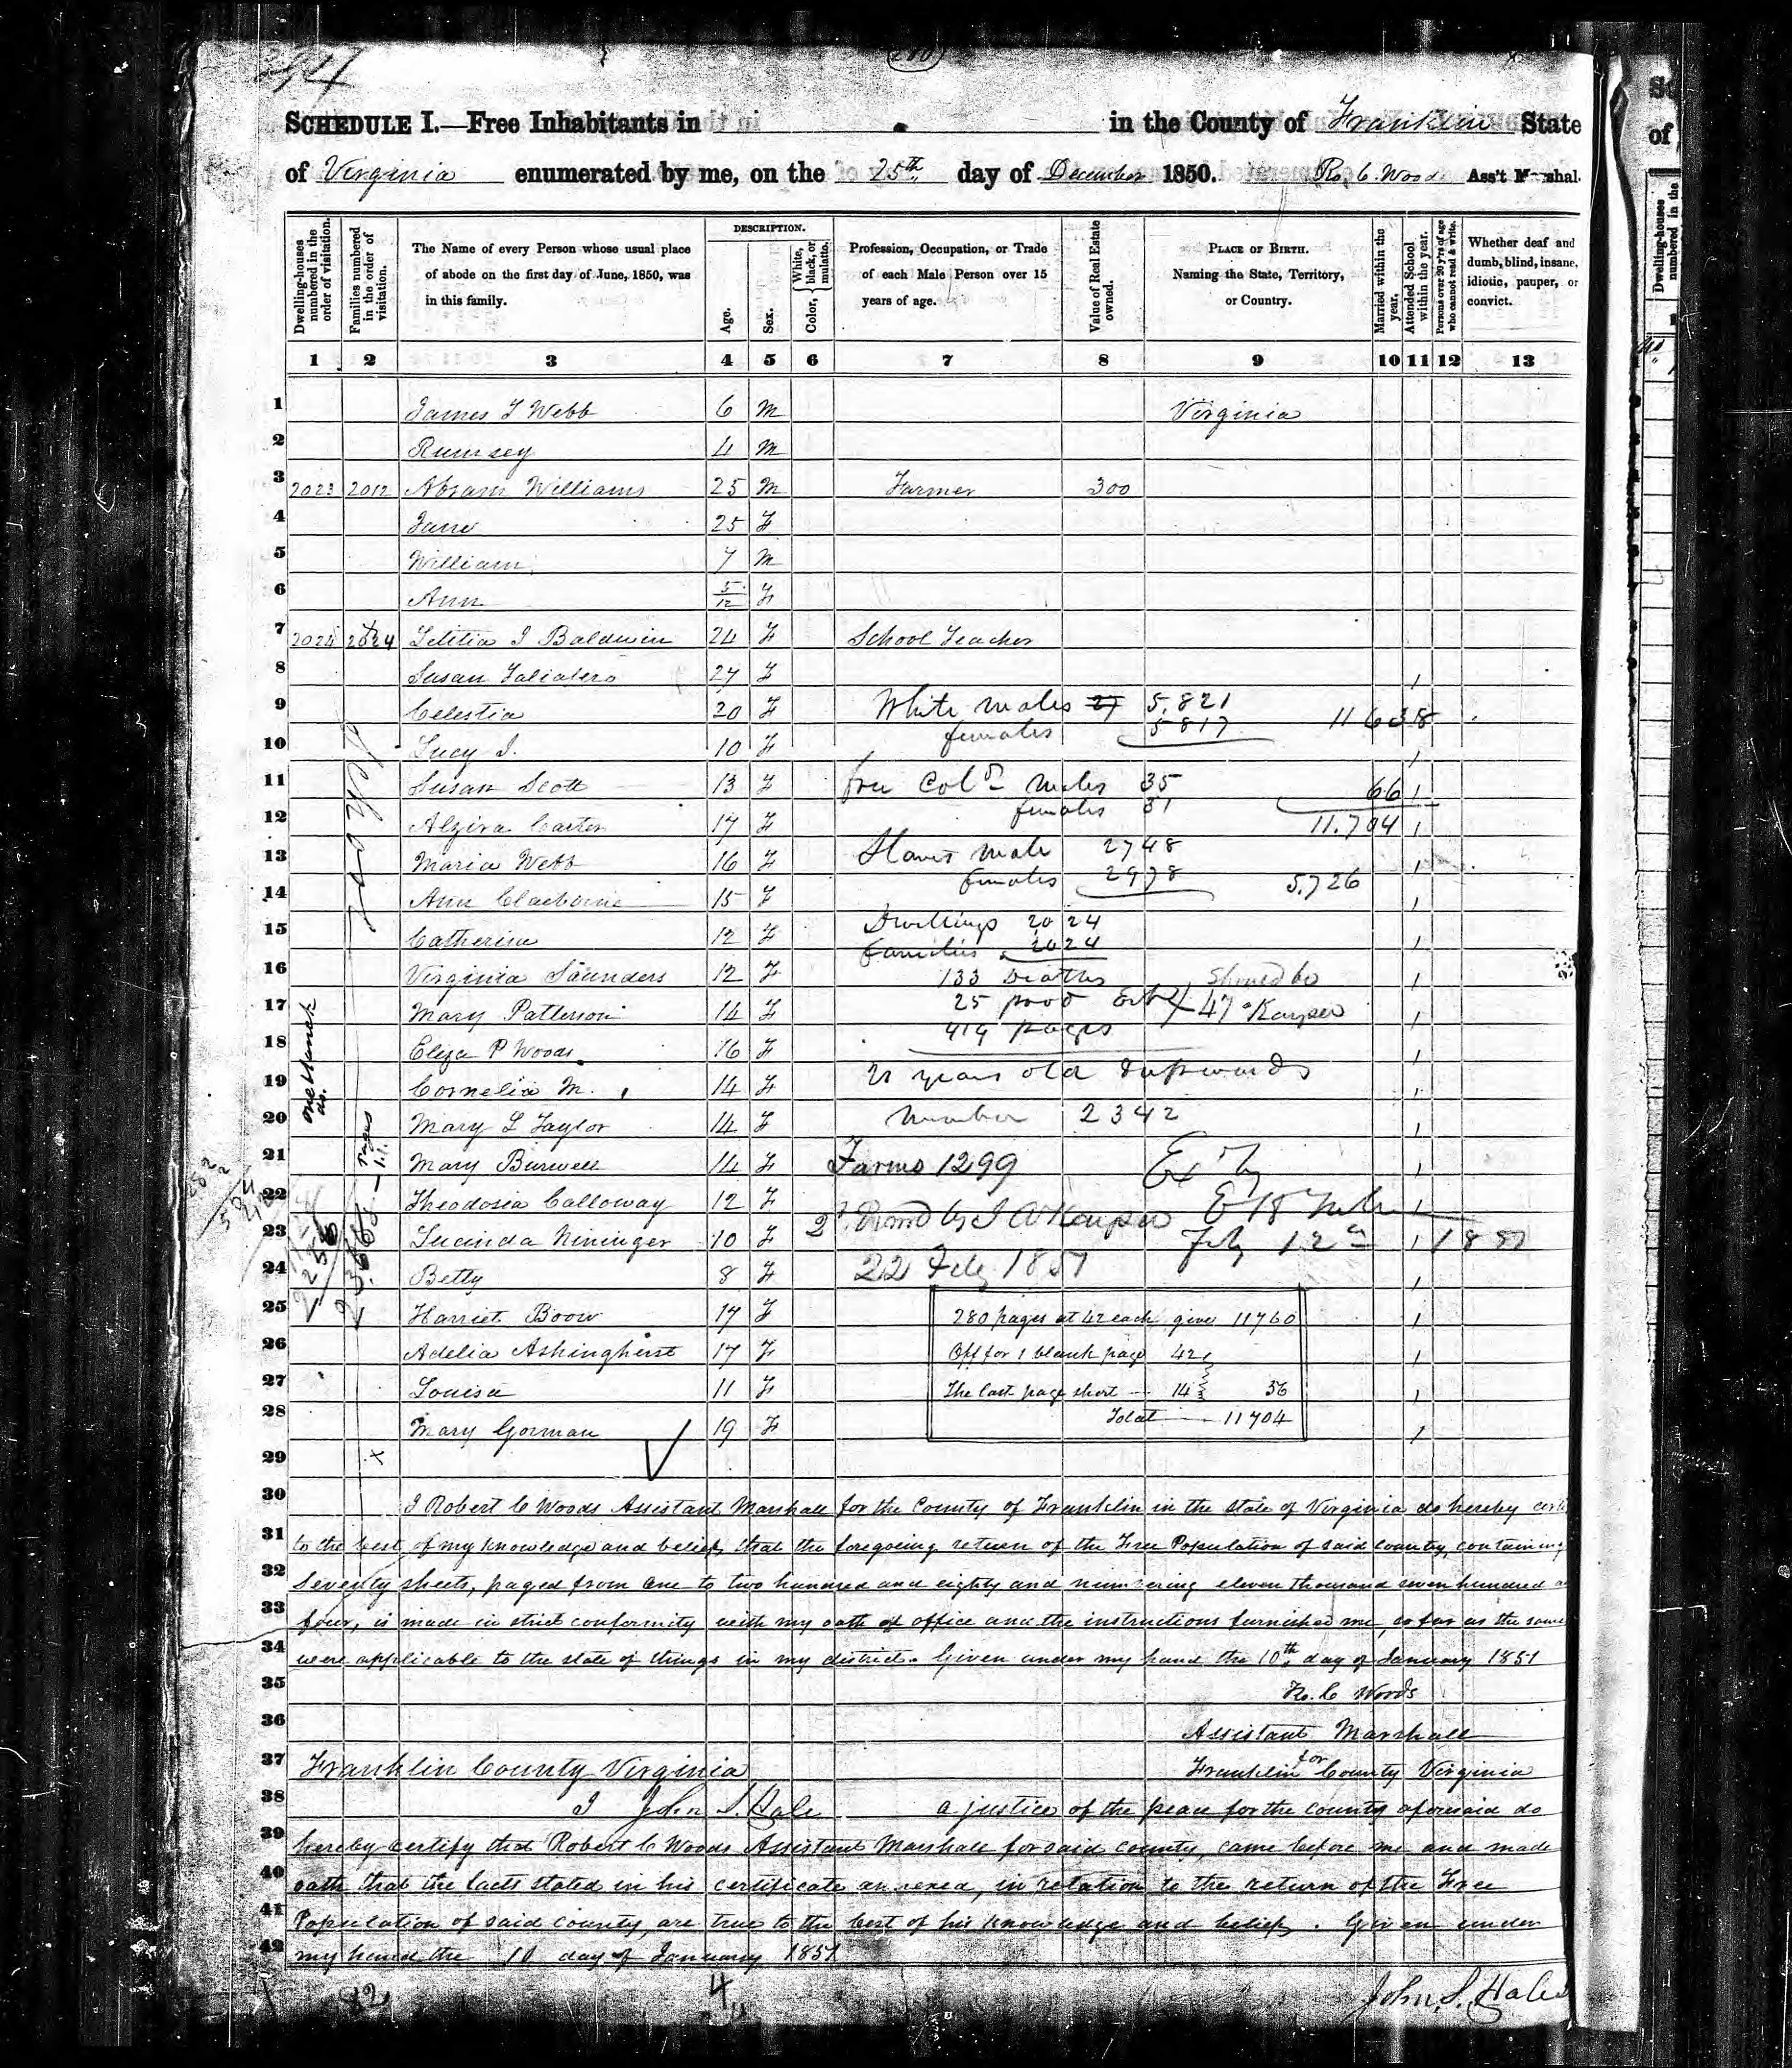 294
280
SCHEDULE I.—Free Inhabitants in in the County of Franklin State
of Virginia enumerated by me, on the 25th day of December 1850. Ro. C. Woods Ass't Marshal.
Dwelling-houses numbered in the order of visitation.
Families numbered in the order of visitation.
The Name of every Person whose usual place of abode on the first day of June, 1850, was in this family.
DESCRIPTION.
Age.
Sex.
Color, White, black, or mulatto.
Profession, Occupation, or Trade of each Male Person over 15 years of age.
Value of Real Estate owned.
PLACE OF BIRTH. Naming the State, Territory, or Country.
Married within the year.
Attended School within the year.
Persons over 20 y'rs of age who cannot read & write.
Whether deaf and dumb, blind, insane, idiotic, pauper, or convict.
1 2 3 4 5 6 7 8 9 10 11 12 13
1 James T Webb 6 M Virginia
2 Rumsey 4 M
3 2023 2012 Abram Williams 25 M Farmer 300
4 Jane 25 F
5 William 7 M
6 Ann 5/12 F
7 2024 2024 Letitia J Baldwin 24 F School Teacher
8 Susan Taliafero 27 F 1
9 Celestia 20 F White males 5,821
females 5817 11638
10 Lucy J. 10 F 1
11 Susan Scott 13 F free Cold males 35 66 1
females 31
12 Alzira Carter 17 F 11.704 1
13 Maria Webb 16 F Slaves male 2748 1
females 2978 5.726
14 Ann Claiborne 15 F 1
15 Catherine 12 F Dwellings 2024 1
Families 2024
16 Virginia Saunders 12 F 133 Deaths Should be 1
17 Mary Patterson 14 F 25 prod Est 47 Kayser 1
414 pages
18 Eliza P Woods 16 F 1
19 Cornelia M. 14 F 21 years old & upwards 1
20 Mary L Taylor 14 F Number 2342 1
21 Mary Burwell 14 F Farms 1299 Ex by 1
22 Theodosia Calloway 12 F 1
23 Lucinda Nininger 10 F Feby 12 1 1851
24 Betty 8 F 22 Feby 1851 1
25 Harriet Boow 17 F 280 pages at 42 each give 11760 1
26 Adelia Ashinghurst 17 F Off for 1 blank page 42 1
27 Louisa 11 F The last page short 14 56 1
28 Mary Gorman 19 F Total 11704 1
29
30 I Robert C Woods Assistant Marshall for the County of Franklin in the state of Virginia do hereby
31 to the best of my knowledge and belief, that the foregoing return of the Free Population of said county, containing
32 Seventy sheets, paged from one to two hundred and eighty and numbering eleven thousand seven hundred
33 four, is made in strict conformity with my oath of office and the instructions furnished me, so far as the same
34 were applicable to the state of things in my district. Given under my hand the 10th day of January 1851
35 Ro. C Woods
36 Assistant Marshall
for
37 Franklin County Virginia Franklin County Virginia
38 I John S. Hale a justice of the peace for the county aforesaid do
39 hereby certify that Robert C Woods Assistant Marshall for said county, came before me and made
40 oath that the facts stated in his certificate annexed, in relation to the return of the Free
41 Population of said county, are true to the best of his knowledge and belief. Given under
42 my hand the 10 day of January 1851
John. S. Hale